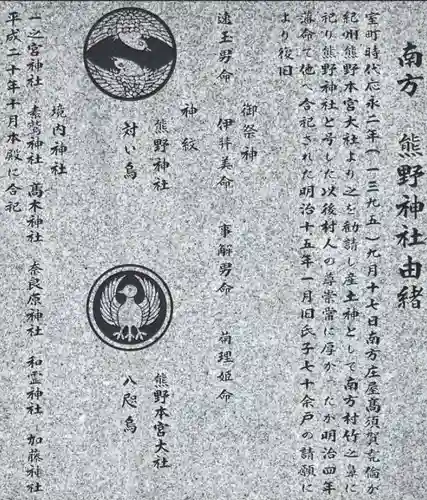 南方 熊野神社由緒
室町時代応永二年(一三九五)九月十七日南方庄屋髙須賀亮倫が
紀州熊野本宮大社より之を勧請し産土神として南方村竹之鼻に
祀り熊野神社と号した以後村人の尊崇常に厚かったが明治四年
薄命て他へ合祀された明治十五年一月旧氏子七十余戸の請願に
より復旧
御祭神
速玉男命 伊弉美命 事解男命 菊理姫命
神紋
熊野神社
対い烏
熊野本宮大社
八咫烏
境内神社
一之宮神社 素鵞神社 髙木神社 奈良原神社 和霊神社 加藤神社
平成二十年十月本殿に合祀